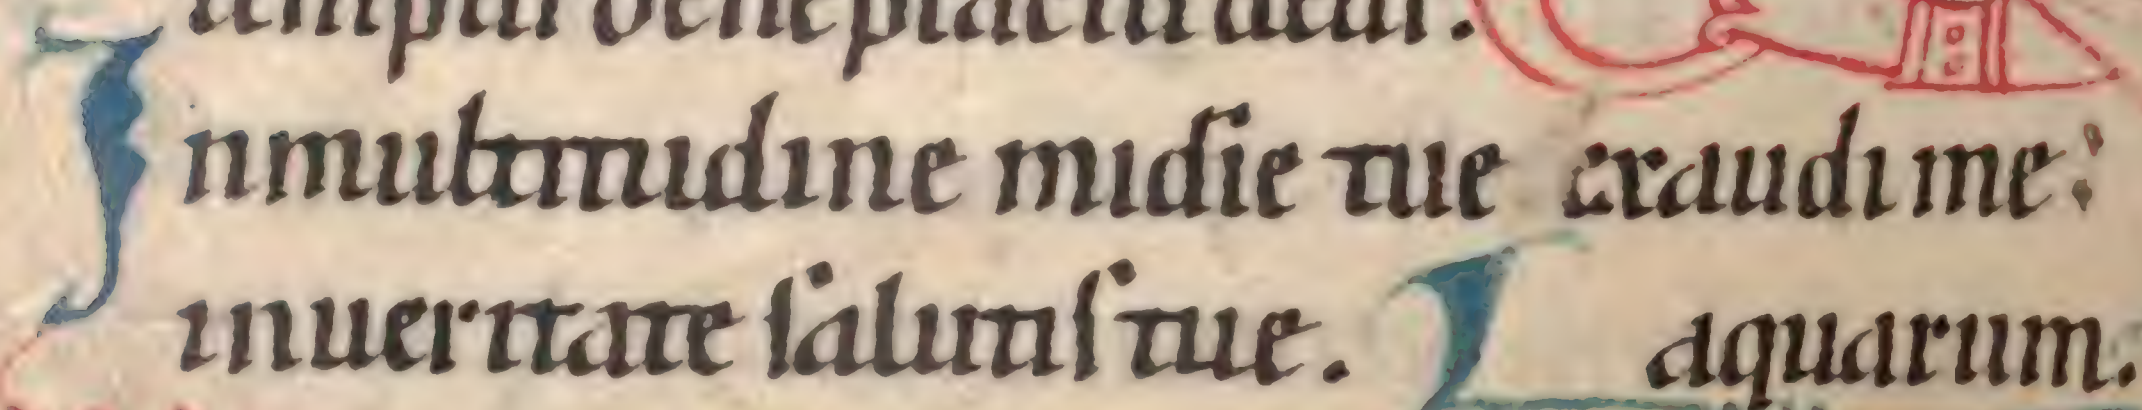 tempus beneplaciti deus.
In multitudine misdie tue exaudi me:
in ueritate salutis tue. L aquarum.